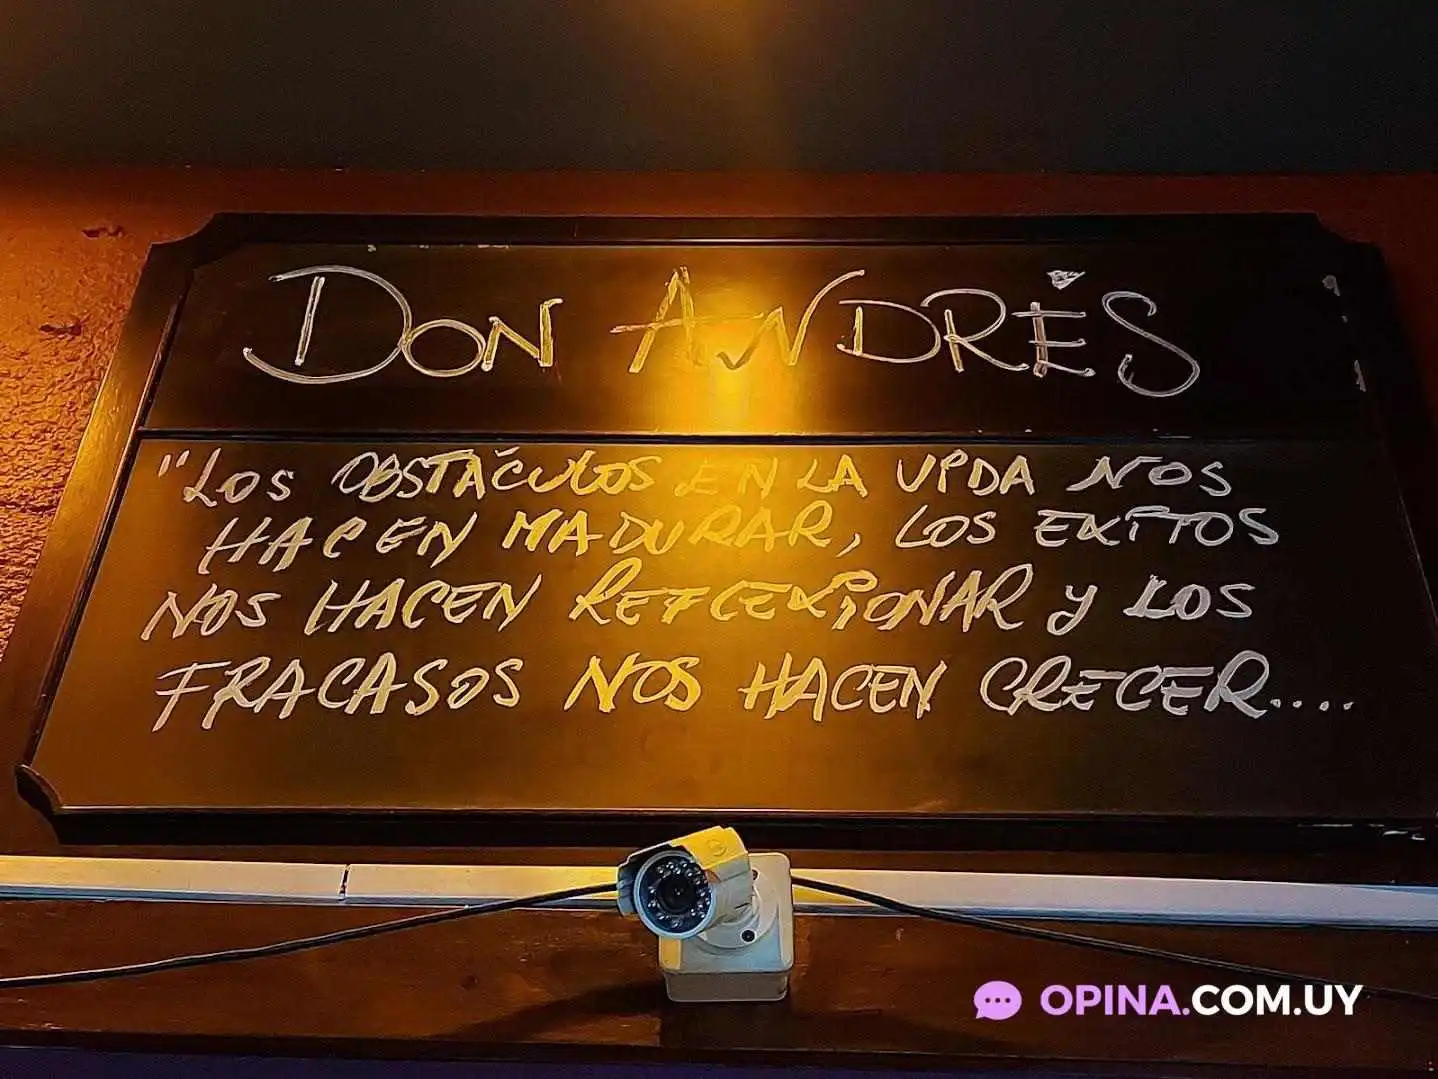 DON ANDRÉS
"LOS OBSTÁCULOS EN LA VIDA NOS
HACEN MADURAR, LOS EXITOS
NOS HACEN REFLEXIONAR Y LOS
FRACASOS NOS HACEN CRECER....
OPINA.COM.UY